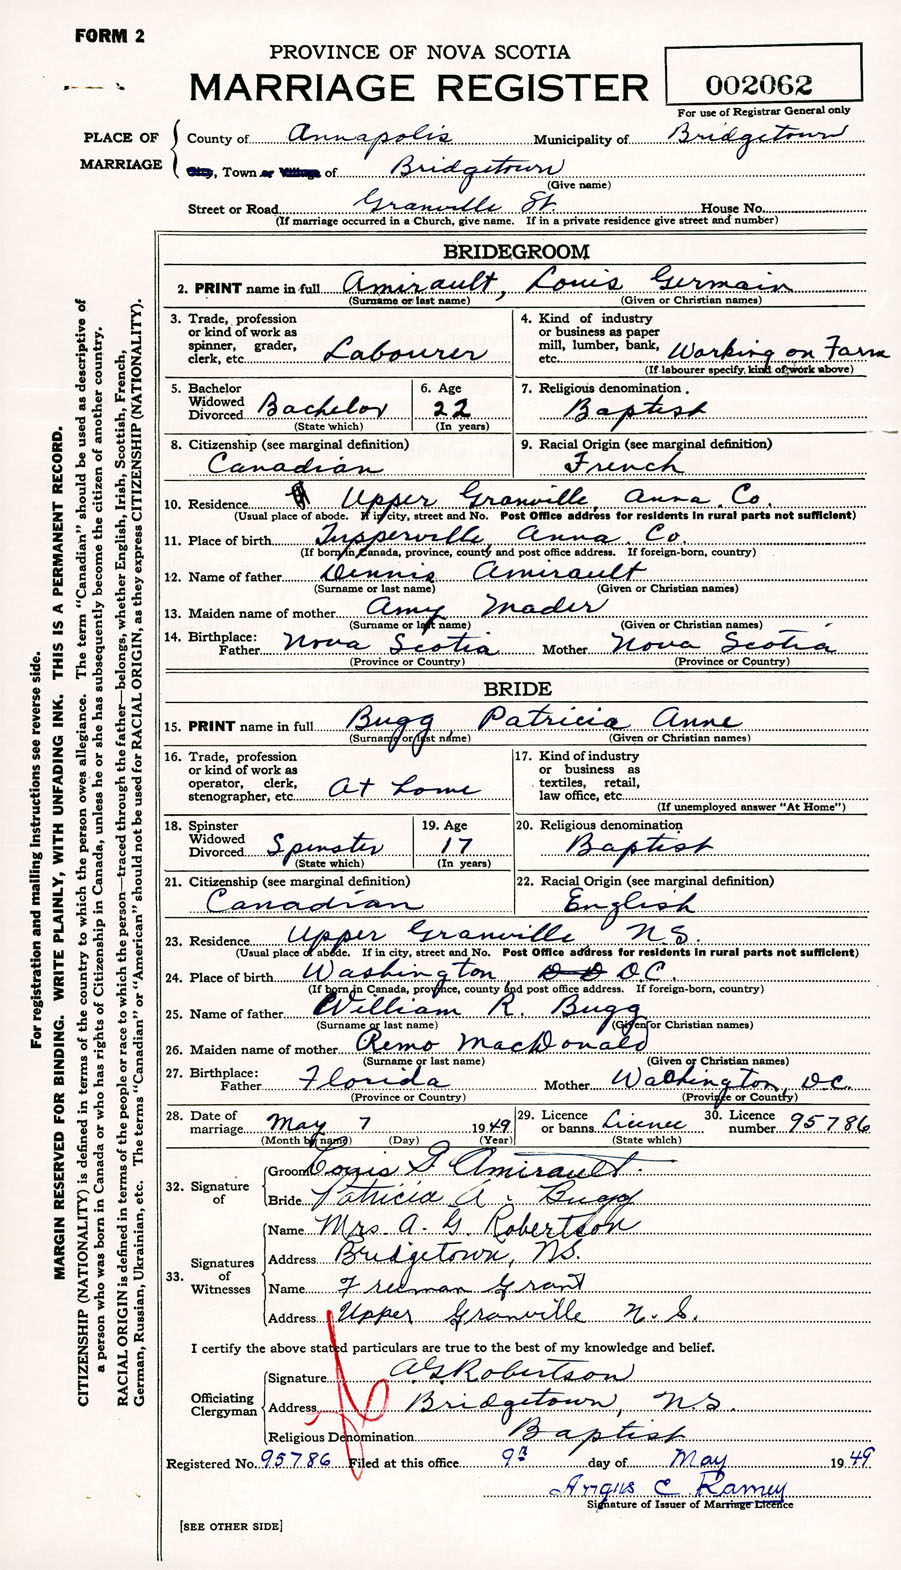 FORM 2
PROVINCE OF NOVA SCOTIA
MARRIAGE REGISTER
002062
For use of Registrar General only
PLACE OF MARRIAGE
County of Annapolis Municipality of Bridgetown
City, Town or Village of Bridgetown
(Give name)
Street or Road Granville St. House No.
(If marriage occurred in a Church, give name. If in a private residence give street and number)
BRIDEGROOM
2. PRINT name in full Amirault, Louis Germain
(Surname or last name) (Given or Christian names)
3. Trade, profession or kind of work as spinner, grader, clerk, etc. Labourer
4. Kind of industry or business as paper mill, lumber, bank, etc. Working on Farm
(If labourer specify, kind of work above)
5. Bachelor Widowed Divorced Bachelor
(State which)
6. Age 22
(In years)
7. Religious denomination Baptist
8. Citizenship (see marginal definition) Canadian
9. Racial Origin (see marginal definition) French
10. Residence Upper Granville, Anna. Co.
(Usual place of abode. If in city, street and No. Post Office address for residents in rural parts not sufficient)
11. Place of birth Tupperville, Anna. Co.
(If born in Canada, province, county and post office address. If foreign-born, country)
12. Name of father Dennis Amirault
(Surname or last name) (Given or Christian names)
13. Maiden name of mother Amy Mader
(Surname or last name) (Given or Christian names)
14. Birthplace: Father Nova Scotia Mother Nova Scotia
(Province or Country) (Province or Country)
BRIDE
15. PRINT name in full Bugg, Patricia Anne
(Surname or last name) (Given or Christian names)
16. Trade, profession or kind of work as operator, clerk, stenographer, etc. At home
17. Kind of industry or business as textiles, retail, law office, etc.
(If unemployed answer "At Home")
18. Spinster Widowed Divorced Spinster
(State which)
19. Age 17
(In years)
20. Religious denomination Baptist
21. Citizenship (see marginal definition) Canadian
22. Racial Origin (see marginal definition) English
23. Residence Upper Granville N.S.
(Usual place of abode. If in city, street and No. Post Office address for residents in rural parts not sufficient)
24. Place of birth Washington D.C.
(If born in Canada, province, county and post office address. If foreign-born, country)
25. Name of father William R. Bugg
(Surname or last name) (Given or Christian names)
26. Maiden name of mother Remo MacDonald
(Surname or last name) (Given or Christian names)
27. Birthplace: Father Florida Mother Washington, D.C.
(Province or Country) (Province or Country)
28. Date of marriage May 7 1949
(Month by name) (Day) (Year)
29. Licence or banns Licence
(State which)
30. Licence number 95786
32. Signature of
Groom Louis G. Amirault
Bride Patricia A. Bugg
33. Signatures of Witnesses
Name Mrs. A. G. Robertson
Address Bridgetown, N.S.
Name Freeman Grant
Address Upper Granville N. S.
I certify the above stated particulars are true to the best of my knowledge and belief.
Officiating Clergyman
Signature A.G. Robertson
Address Bridgetown, N.S.
Religious Denomination Baptist
Registered No. 95786 Filed at this office 9th day of May 1949
Angus C. Ramey
Signature of Issuer of Marriage Licence
[SEE OTHER SIDE]
For registration and mailing instructions see reverse side.
MARGIN RESERVED FOR BINDING. WRITE PLAINLY, WITH UNFADING INK. THIS IS A PERMANENT RECORD.
CITIZENSHIP (NATIONALITY) is defined in terms of the country to which the person owes allegiance. The term "Canadian" should be used as descriptive of
a person who was born in Canada or who has rights of Citizenship in Canada, unless he or she has subsequently become the citizen of another country.
RACIAL ORIGIN is defined in terms of the people or race to which the person—traced through the father—belongs, whether English, Irish, Scottish, French,
German, Russian, Ukrainian, etc. The terms "Canadian" or "American" should not be used for RACIAL ORIGIN, as they express CITIZENSHIP (NATIONALITY).